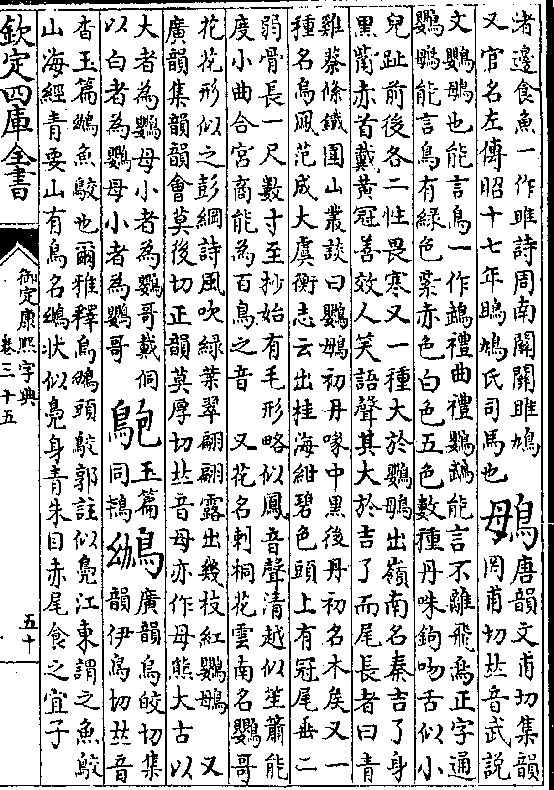 渚邊食魚一作雎詩周南關關雎鳩
又官名左傳昭十七年鴡鳩氏司馬也　䳇唐韻文甫切集韻
罔甫切𠀤音武說
文鸚䳇也能言鳥一作鵡禮曲禮鸚鵡能言不離飛鳥正字通
鸚䳇能言鳥有綠色蒼赤色白色五色數種丹咮鉤吻舌似小
兒趾前後各二性畏寒又一種大於鸚䳇出嶺南名秦吉了身
黑觜赤首戴黃冠善效人笑語聲其大於吉了而尾長者曰青
雞蔡條鐵圍山叢談曰鸚䳇初丹喙中黑後丹初名木矦又一
種名鳥鳳范成大虞衡志云出桂海紺碧色頭上有冠尾垂二
弱骨長一尺數寸至抄始有毛形略似鳳音聲清越似笙簫能
度小曲合宮商能為百鳥之音　又花名刺桐花雲南名鸚哥
花花形似之彭綱詩風吹綠葉翠翩翩露出幾枝紅鸚䳇　又
廣韻集韻韻會莫後切正韻莫厚切𠀤音母亦作母熊大古以
大者為鸚母小者為鸚哥戴侗
以白者為鸚母小者為鸚哥　䳈玉篇
同鴇　䳩廣韻烏皎切集
韻伊鳥切𠀤音
杳玉篇䳩魚鵁也爾雅釋鳥䳩頭鵁郭註似鳧江東謂之魚鵁
山海經青要山有鳥名䳩狀似鳧身青朱目赤尾食之宜子
欽定四庫全書
御定康熙字典
卷三十五
五十